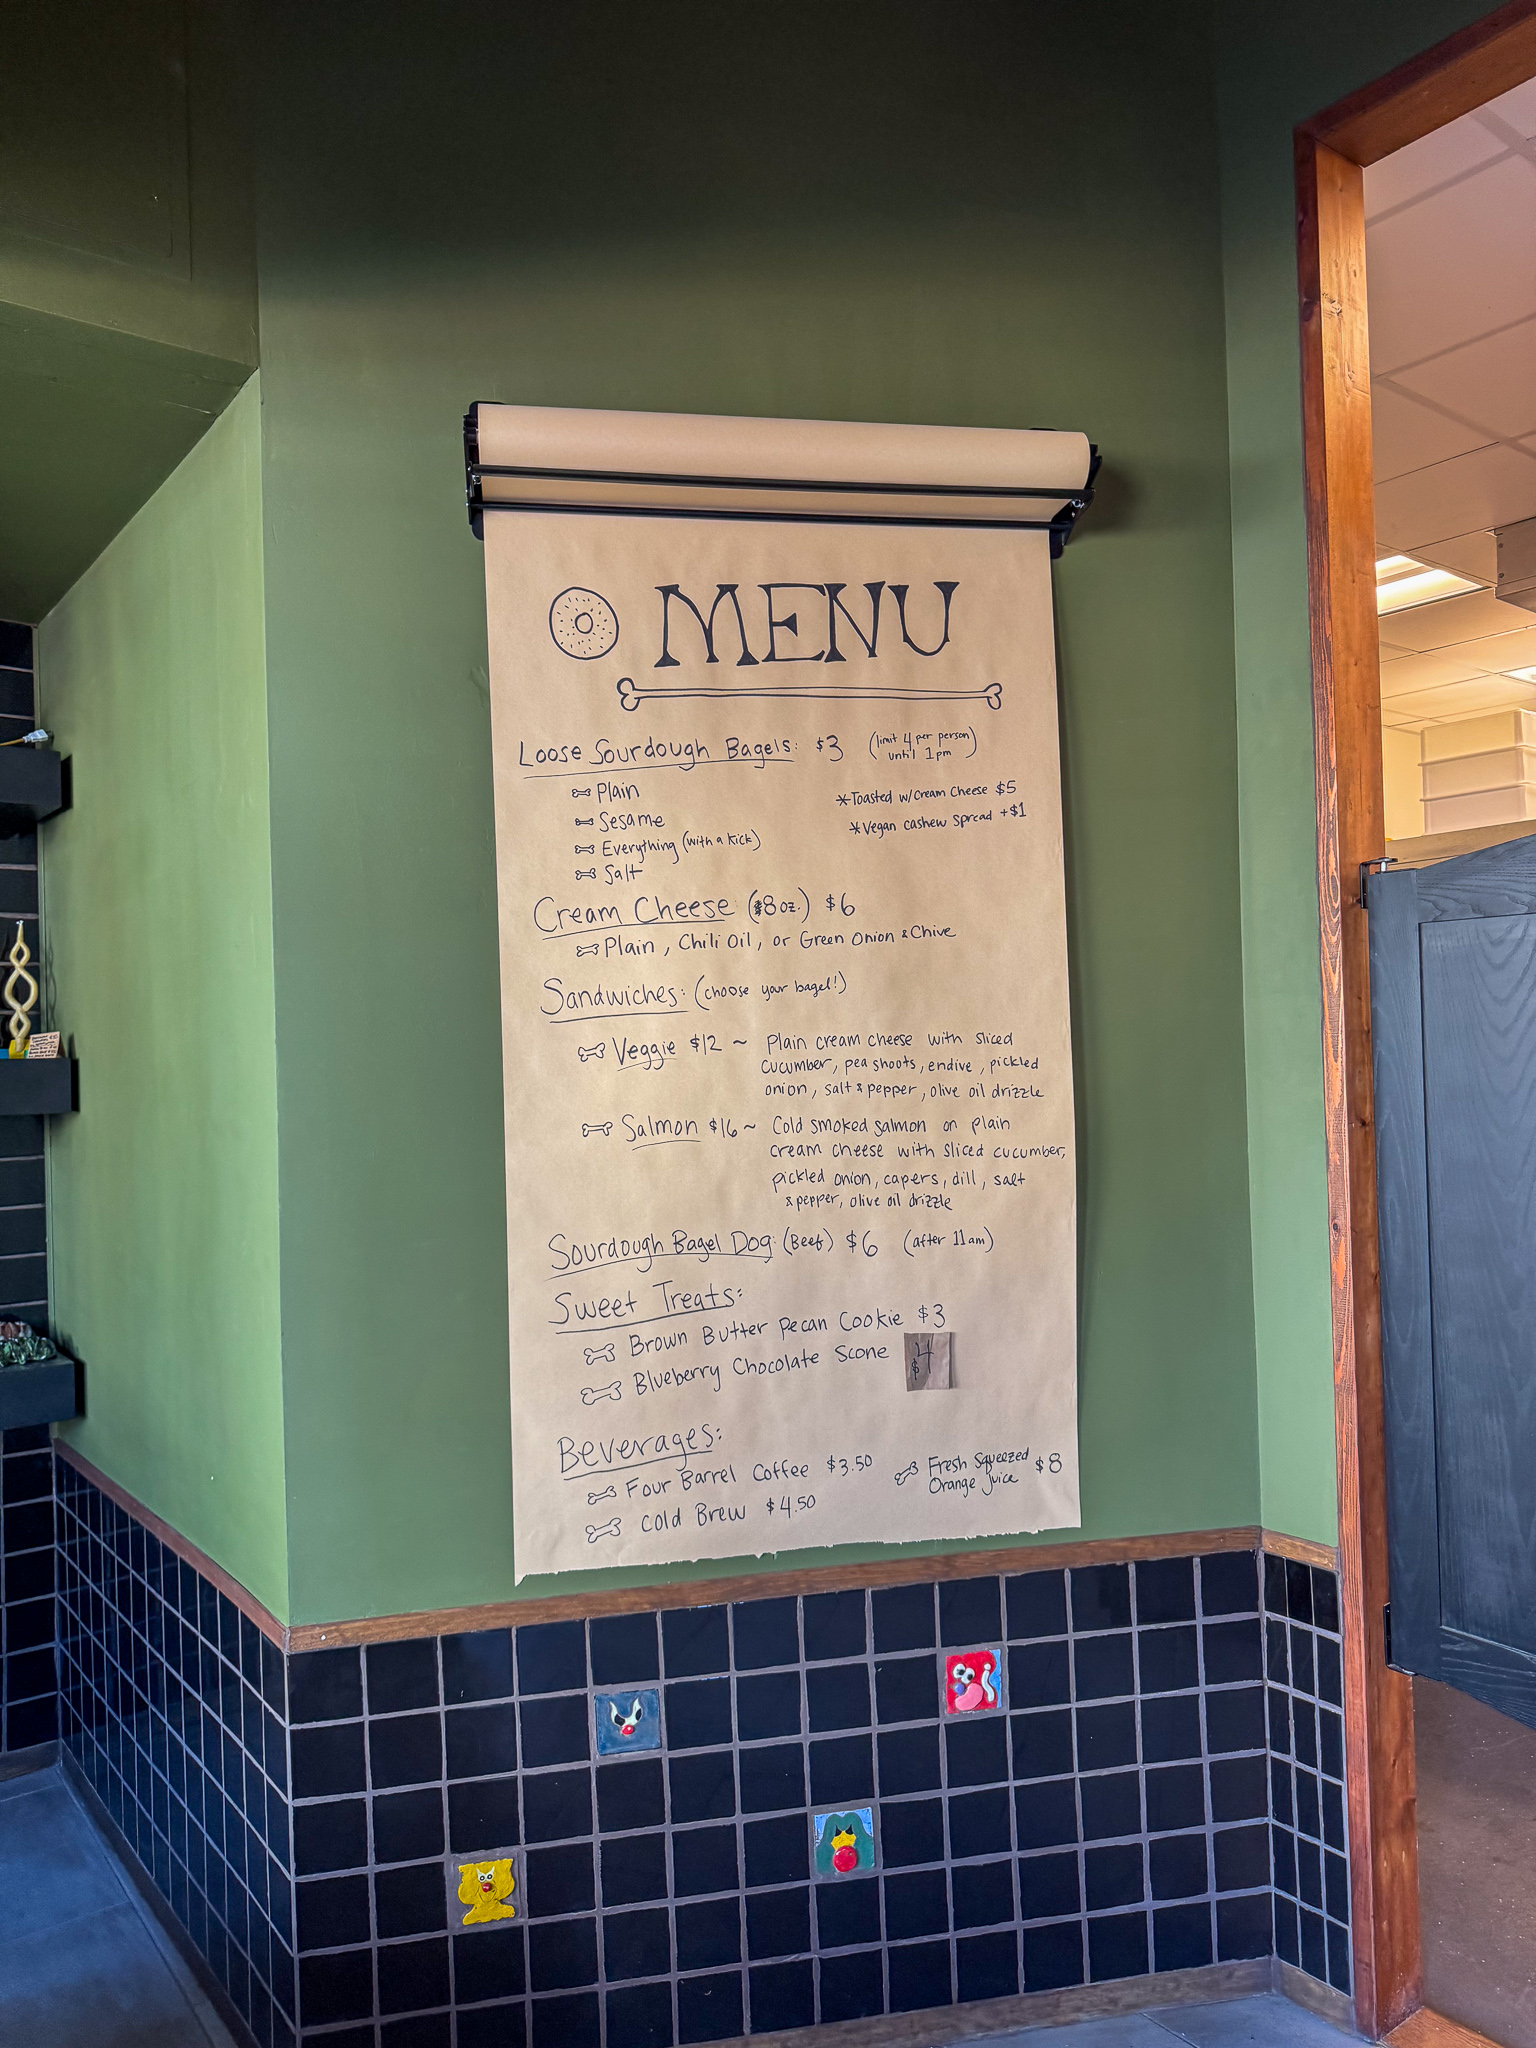 MENU
Loose Sourdough Bagels: $3 (limit 4 per person
until 1pm)
Plain
*Toasted w/cream cheese $5
Sesame
*Vegan cashew spread +$1
Everything (with a kick)
Salt
Cream Cheese (8 oz.) $6
Plain, Chili Oil, or Green Onion & Chive
Sandwiches: (choose your bagel!)
Veggie $12 ~ Plain cream cheese with sliced
cucumber, pea shoots, endive, pickled
onion, salt & pepper, olive oil drizzle
Salmon $16 ~ Cold smoked salmon on plain
cream cheese with sliced cucumber,
pickled onion, capers, dill, salt
& pepper, olive oil drizzle
Sourdough Bagel Dog: (Beef) $6 (after 11am)
Sweet Treats:
Brown Butter Pecan Cookie $3
Blueberry Chocolate Scone $4
Beverages:
Four Barrel Coffee $3.50
Cold Brew $4.50
Fresh Squeezed
Orange Juice $8